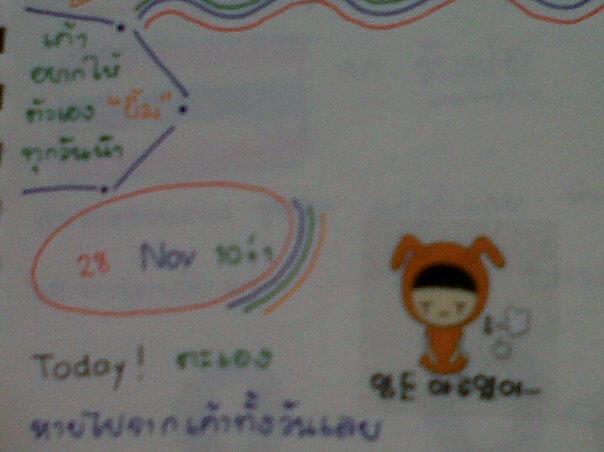 เค้า
อยากให้
ตัวเอง "ยิ้ม"
ทุกวันน๊า
28 Nov 10 ค่ำ
Today! ตะเอง
หายไปจากเค้าทั้งวันเลย